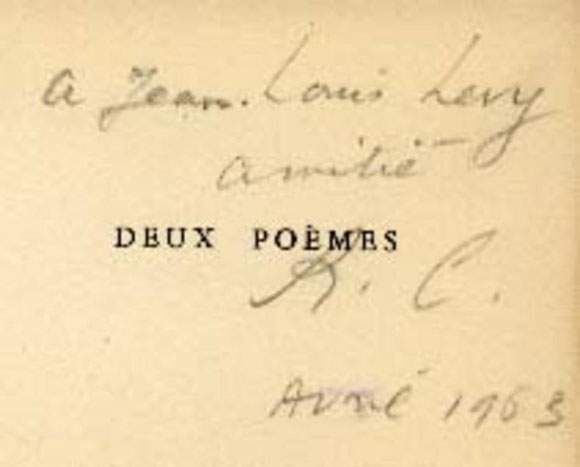 a Jean-Louis Levy
amitié
DEUX POÈMES
R. C.
Avril 1963